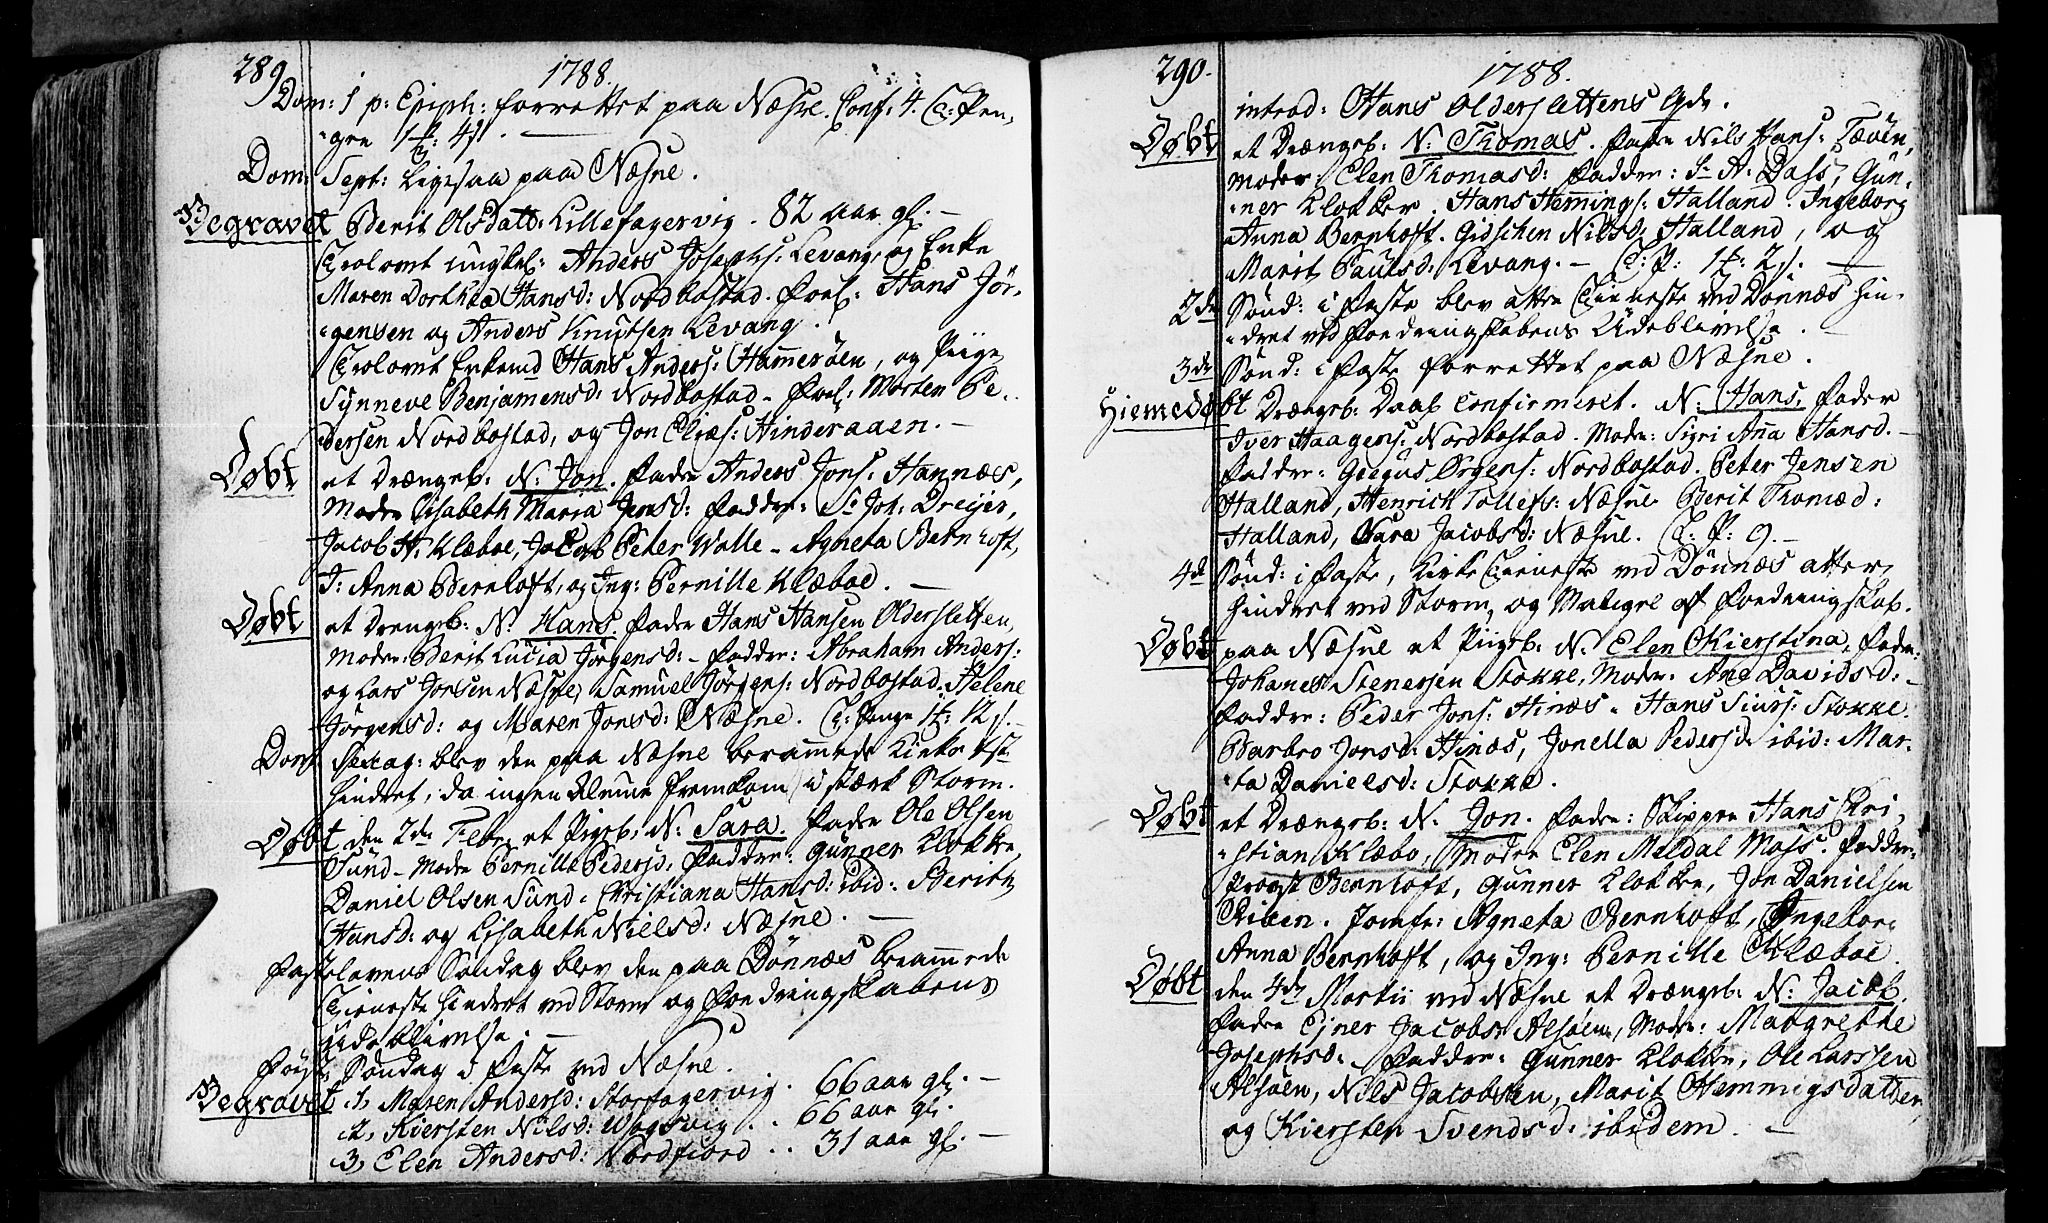 289 1788.
Dom: 1 p: Epiph: forrettet paa Næsne. Conf: 4. C: Pen-
-ge 1 4 s.
Dom: Sept: ligesaa paa Næsne.
Begravet Berit Olsdatt: Lillefagervig. 82 aar gl. —
Trolovet ungkl: Anders Josephs: Levang, og Enke
Maren Dorthea Hansd: Nordbostad. Forl: Hans Jör-
-gensen og Anders Knutsen Levang.
Trolovet Enkemd Hans Anders: Hamerøen, og Piige
Synneve Benjamensd: Nordbostad — Forl: Morten Pe-
-dersen Nordbostad, og Jon Elias: Hinderaaen. —
Døbt et Drengeb: N: Jon. Fader Anders Jons: Hannæs,
Moder Lisabeth Maria Jensd: Faddre: Sr Joh: Dreyer,
Jacob H: Klæboe, Jacob Peter Walle — Agneta Bernhoft,
I: Anna Bernhoft, og Ing: Pernille Klæboe. —
Døbt et Drengeb: N: Hans. Fader Hans Hansen Oldersletten,
Moder: Berit Lucia Jørgensd: — Faddre: Abraham Anders:
og Lars Jonsen Næsne, Samuel Jørgens: Nordbostad. Helene
Jörgensd: og Maren Jonsd: Næsne. C: Penge 1 12 s. —
Dom: Sexag: blev den paa Næsne berammede Kirke
hindret, da ingen Almue fremkom i stærk Storm.
Døbt den 2den Febr: et Pigeb: N: Sara. Fader Ole Olsen
Sund — Moder Pernille Pedersd: Faddre: Gunner Klokker,
Daniel Olsen Sund — Christiana Hansd: ibid: Berith
Hansd: og Lisabeth Nielsd: Næsne. —
Fastelavens Söndag blev den paa Dönnæs berammede
Tieneste hindret ved Storm og Fordringskabens
udeblivelse. —
Söndag i Faste ved Næsne.
Begravet 1, Maren Andersd: Storfagervig. 66 aar gl. —
2, Kiersten Nilsd: Wogsvig .. 66 aar gl.
3, Elen Andersd: Nordfiord .. 31 aar gl. —
290. 1788.
introd: Hans Olderslettens Qde.
Døbt et Drengeb: N: Thomas. Fader Nils Hans: Tæven,
Moder Elen Thomasd: Faddre: Sr A: Dass, Gun-
-ner Klokker. Hans Hemings: Halland. Ingeborg
Anna Bernhoft. Gidschen Nilsd: Halland, og
Marit Paulsd: Levang. — C: P: 1 2 s. —
2den Sönd: i Faste blev atter Tieneste ved Dönnæs hin-
-dret ved Fordringskabens Udeblivelse.
3de Sönd: i Faste forrettet paa Næsne.
Hiemedøbt Drengeb: Daab Confirmeret. N: Hans. Fader
Iver Haagens: Nordbostad. Moder: Sigri Anna Hansd. —
Faddre: Gregus Ørgens: Nordbostad. Peter Jensen
Halland, Henrich Tollefs: Næsne. Berit Thomæd:
Halland, Sara Jacobsd: Næsne. C: P: 9. —
4de Sönd: i Faste, Kirke Tieneste ved Dönnæs atter
hindret ved Storm, og Mangel af Fordringskab.
Døbt paa Næsne et Piigeb: N: Elen Kierstina, Fader:
Johannes Stenersen Stokke, Moder. Ane Davidsd: —
Faddre: Peder Jons: Hinæs — Hans Siurs: Stokke.
Barbro Jonsd: Hinæs, Jonella Pedersd ibid: Mar-
-ta Danielsd: Stokke.
Døbt et Drengeb: N: Jon. Fader: Skipper Hans Chri-
-stian Klæbo, Moder Elen Meldal Moss. Faddre:
Provst Bernhoft, Gunner Klokker, Jon Danielsen
Riben. Jomfr: Agneta Bernhoft, Ingeborg
Anna Bernhoft, og Ing: Pernille Klæboe.
Døbt den 4de Martii ved Næsne et Drengeb: N: Jacob,
Fader Ejner Jacobs: Alsøen, Moder: Margrethe
Josephsd: Faddre: Gunner Klokker, Ole Larssen
Alsøen, Nils Jacobsen, Marit Hemmigsdatter,
og Kiersten Svendsd: ibidem. —